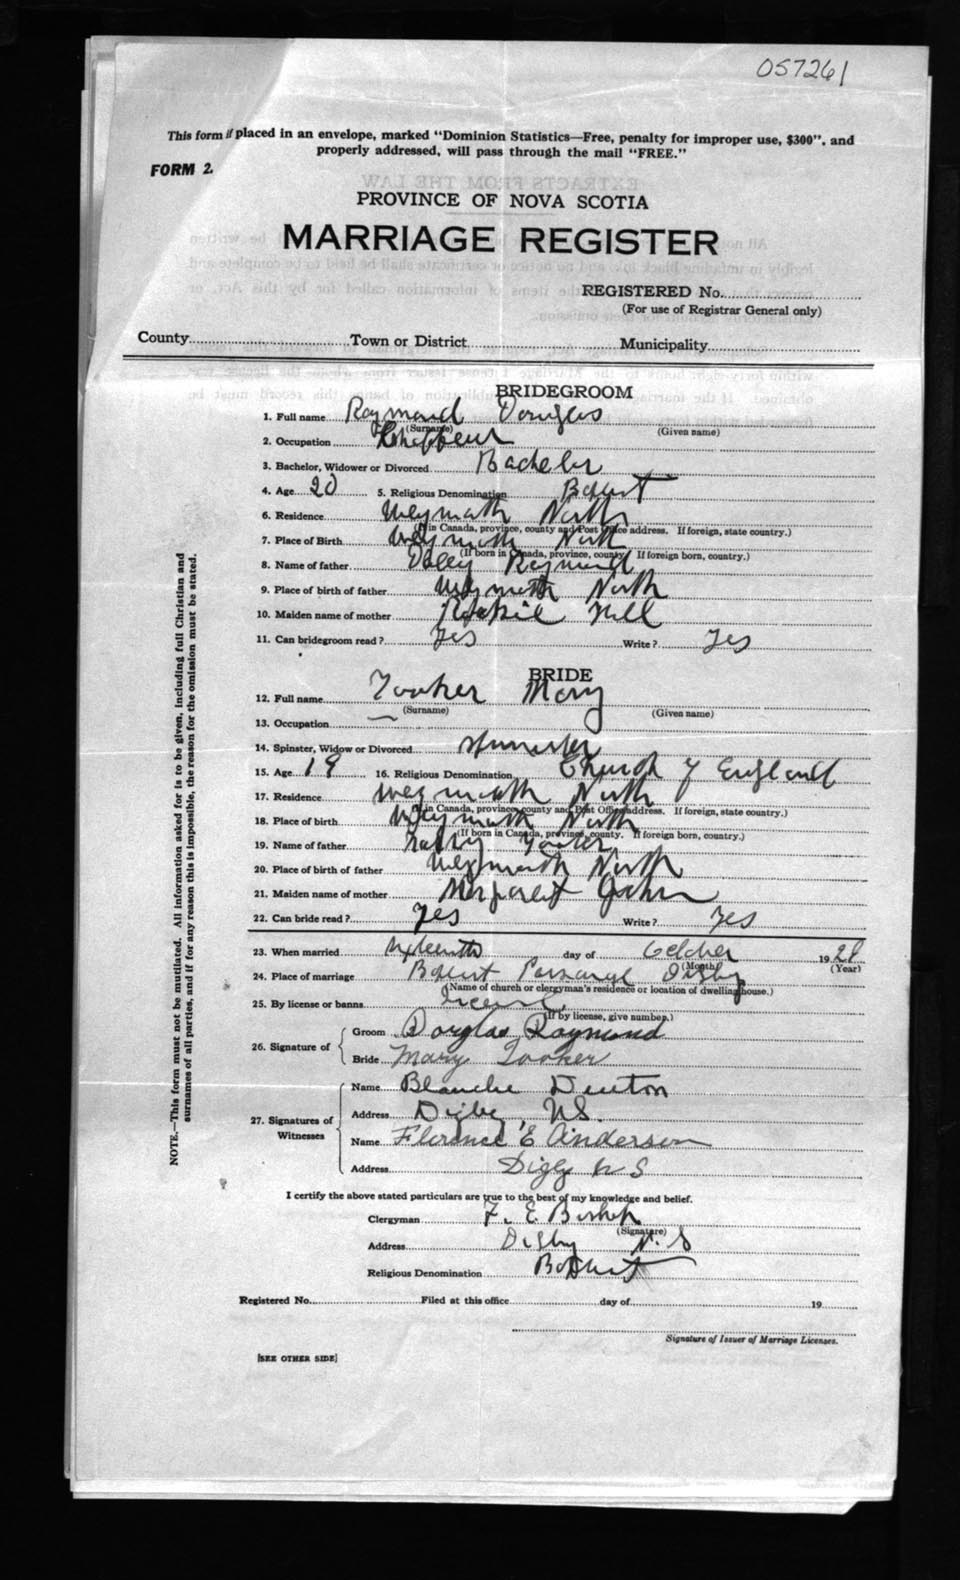 057261
This form if placed in an envelope, marked "Dominion Statistics—Free, penalty for improper use, $300", and
properly addressed, will pass through the mail "FREE."
FORM 2.
PROVINCE OF NOVA SCOTIA
MARRIAGE REGISTER
REGISTERED No.
(For use of Registrar General only)
County Town or District Municipality
BRIDEGROOM
1. Full name Raymond Douglas
(Surname) (Given name)
2. Occupation
3. Bachelor, Widower or Divorced Bachelor
4. Age 20 5. Religious Denomination Baptist
6. Residence Weymouth North
(If in Canada, province, county and Post Office address. If foreign, state country.)
7. Place of Birth Weymouth North
(If born in Canada, province, county. If foreign born, country.)
8. Name of father Raymond
9. Place of birth of father Weymouth North
10. Maiden name of mother
11. Can bridegroom read? Yes Write? Yes
BRIDE
12. Full name Tooker Mary
(Surname) (Given name)
13. Occupation —
14. Spinster, Widow or Divorced Spinster
15. Age 19 16. Religious Denomination Church of England
17. Residence Weymouth North
(If in Canada, province, county and Post Office address. If foreign, state country.)
18. Place of birth Weymouth North
(If born in Canada, province, county. If foreign born, country.)
19. Name of father Tooker
20. Place of birth of father Weymouth North
21. Maiden name of mother Margaret
22. Can bride read? Yes Write? Yes
23. When married Sixteenth day of October 1928
(Month) (Year)
24. Place of marriage Baptist Parsonage Digby
(Name of church or clergyman's residence or location of dwelling house.)
25. By license or banns License
(If by license, give number.)
26. Signature of Groom Douglas Raymond
Bride Mary Tooker
27. Signatures of Witnesses Name Blanche Denton
Address Digby, N.S.
Name Florence E Anderson
Address Digby N S
I certify the above stated particulars are true to the best of my knowledge and belief.
Clergyman F. E. Bishop
(Signature)
Address Digby N.S
Religious Denomination Baptist
Registered No. Filed at this office day of 19
Signature of Issuer of Marriage Licenses.
[SEE OTHER SIDE]
NOTE.—This form must not be mutilated. All information asked for is to be given, including full Christian and
surnames of all parties, and if for any reason this is impossible, the reason for the omission must be stated.